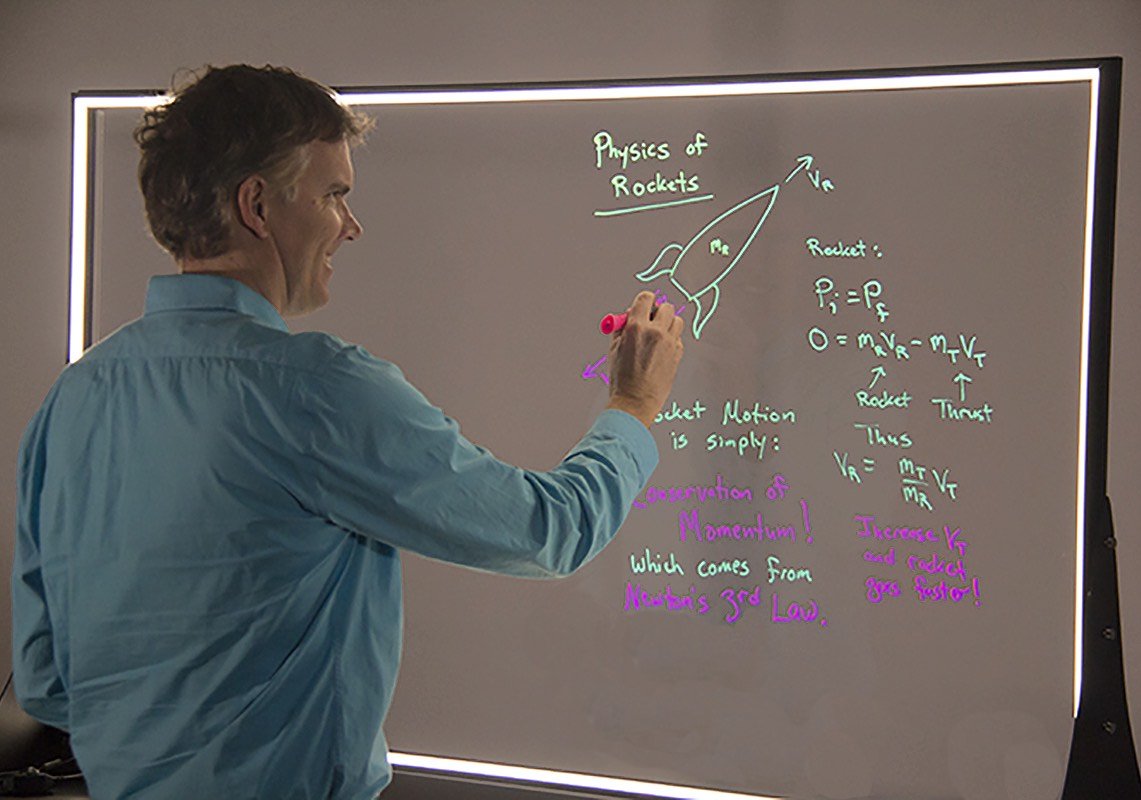 Physics of
Rockets
V_R
m_R
ocket Motion
is simply:
Conservation of
Momentum!
which comes from
Newton's 3rd Law.
Rocket:
P_i = P_f
0 = m_R V_R - m_T V_T
Rocket Thrust
Thus
V_R = m_T/m_R V_T
Increase V_T
and rocket
goes faster!